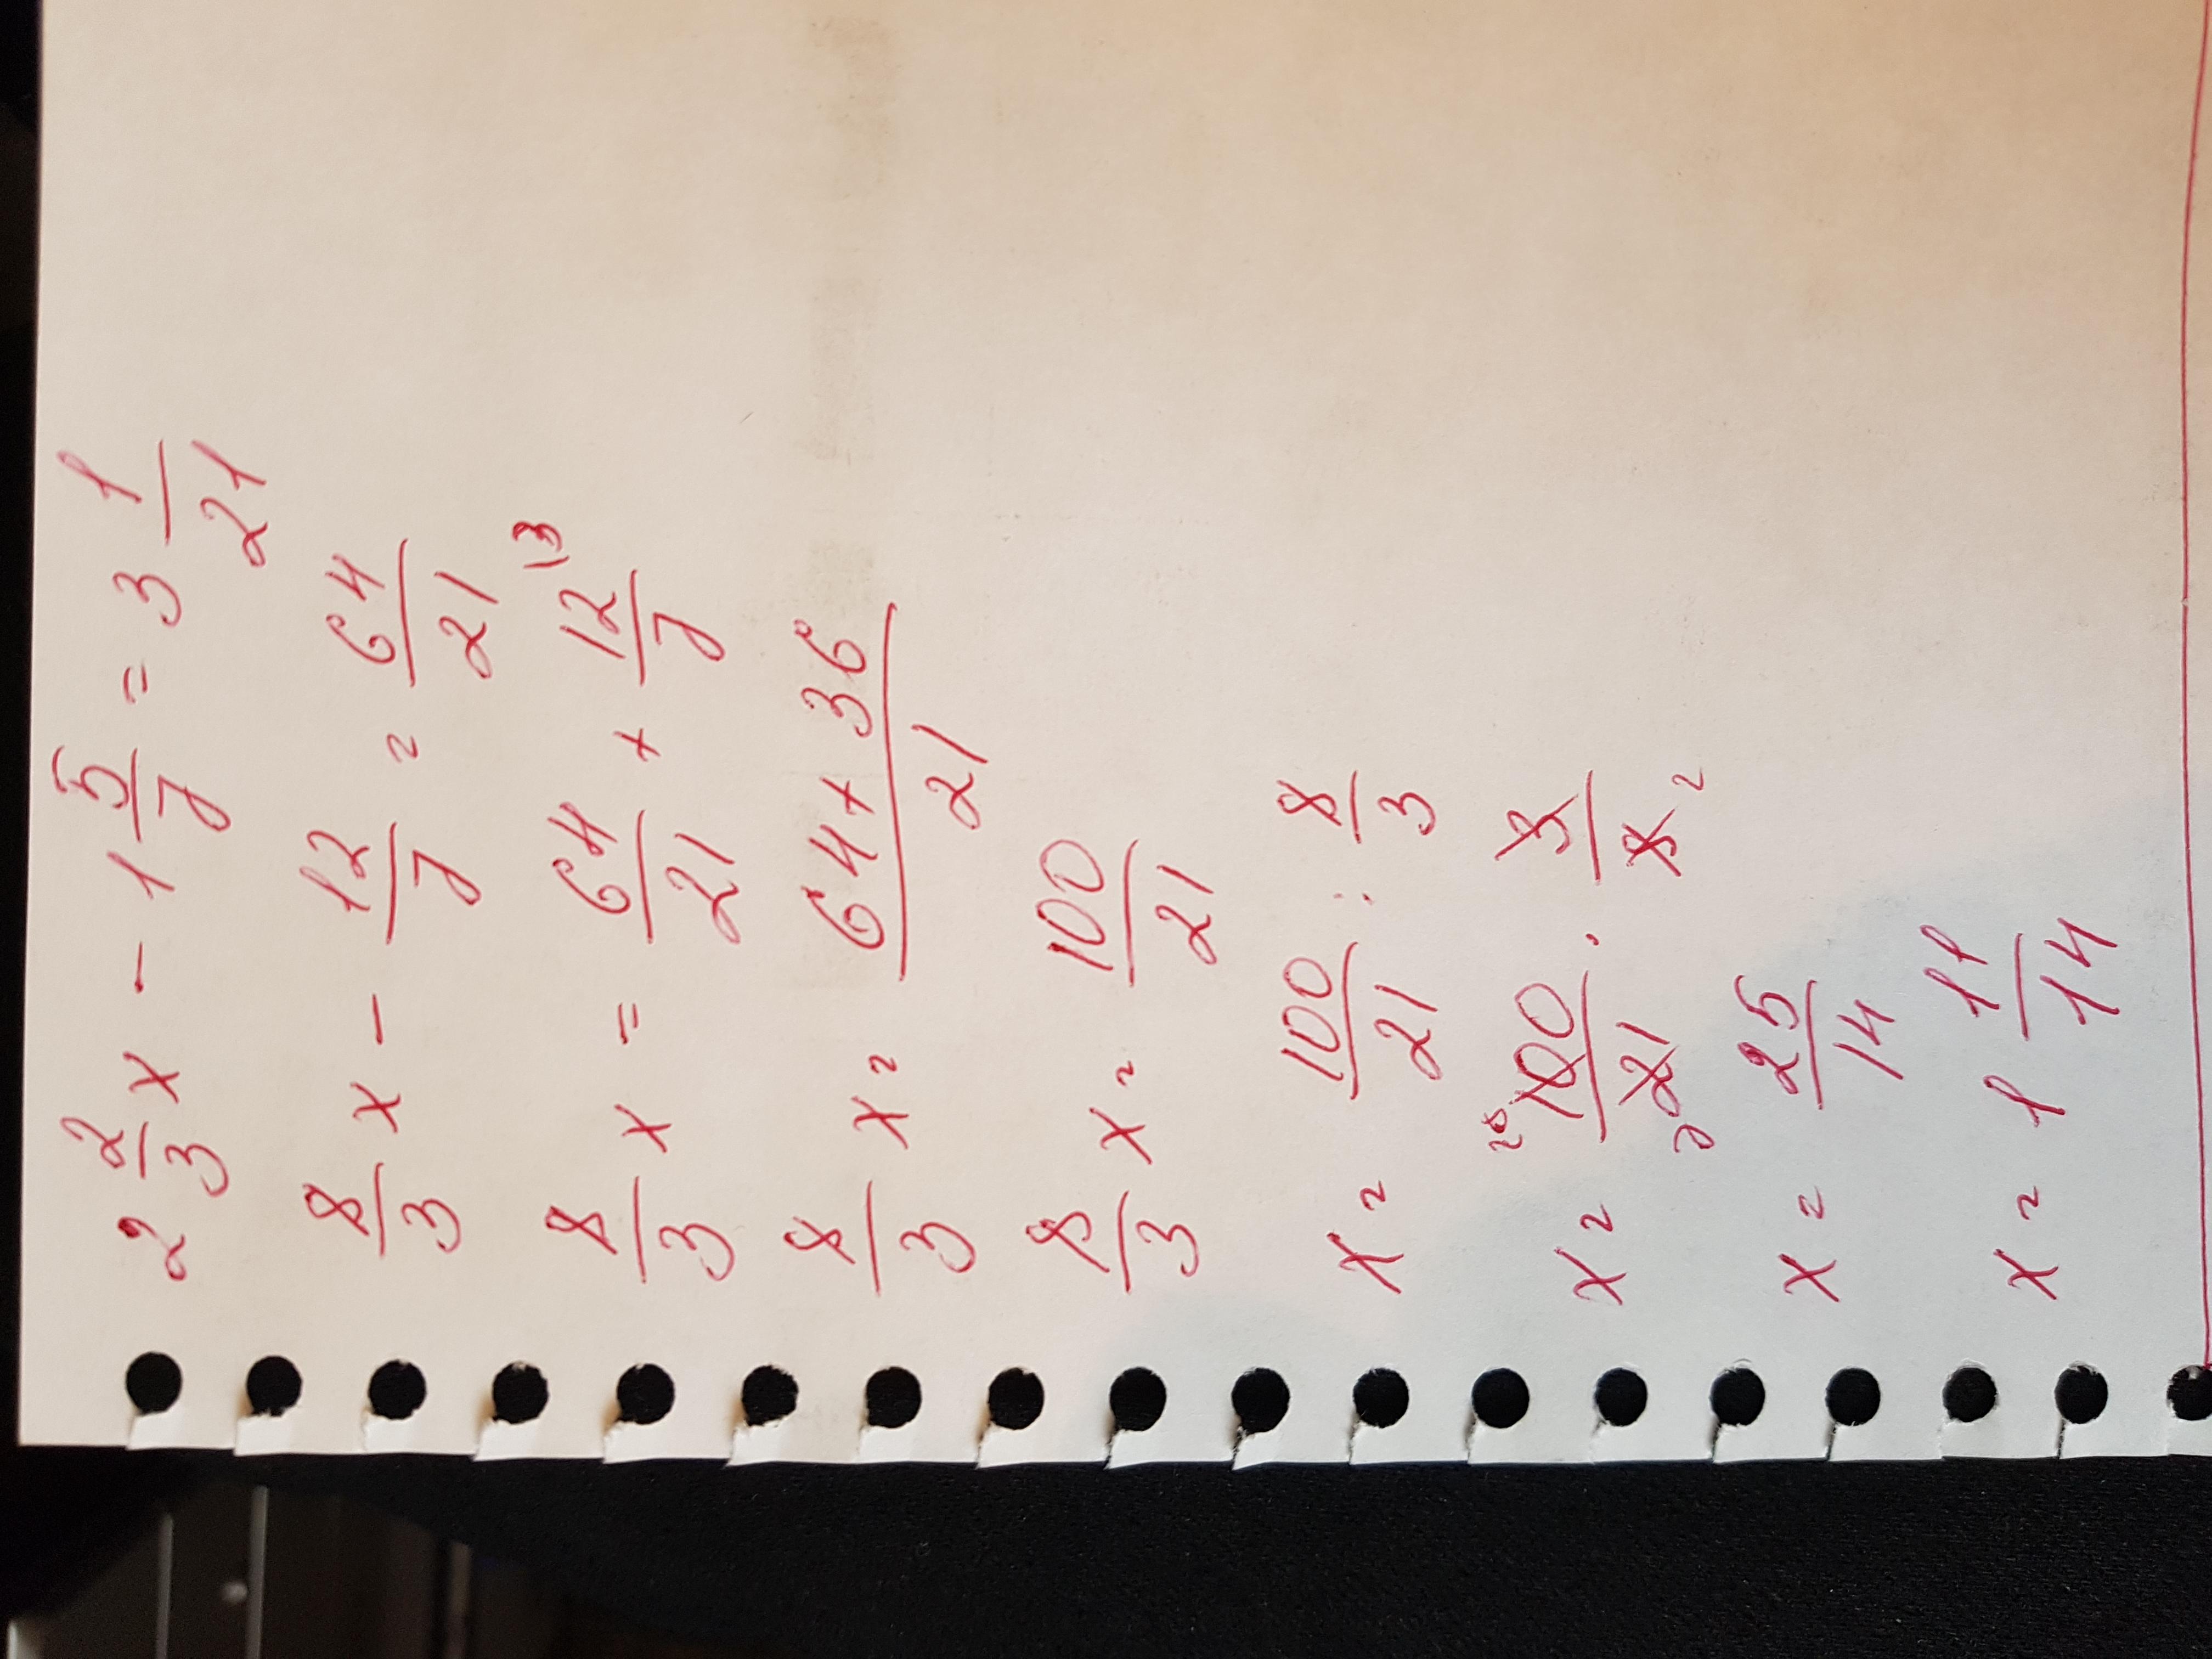 2 2/3 x - 1 5/7 = 3 1/21
8/3 x - 12/7 = 64/21
8/3 x = 64/21 + 12/7 \3
8/3 x = 64+36/21
8/3 x = 100/21
x = 100/21 : 8/3
x = 25 100/21 7 · 3/8 2
x = 25/14
x = 1 11/14